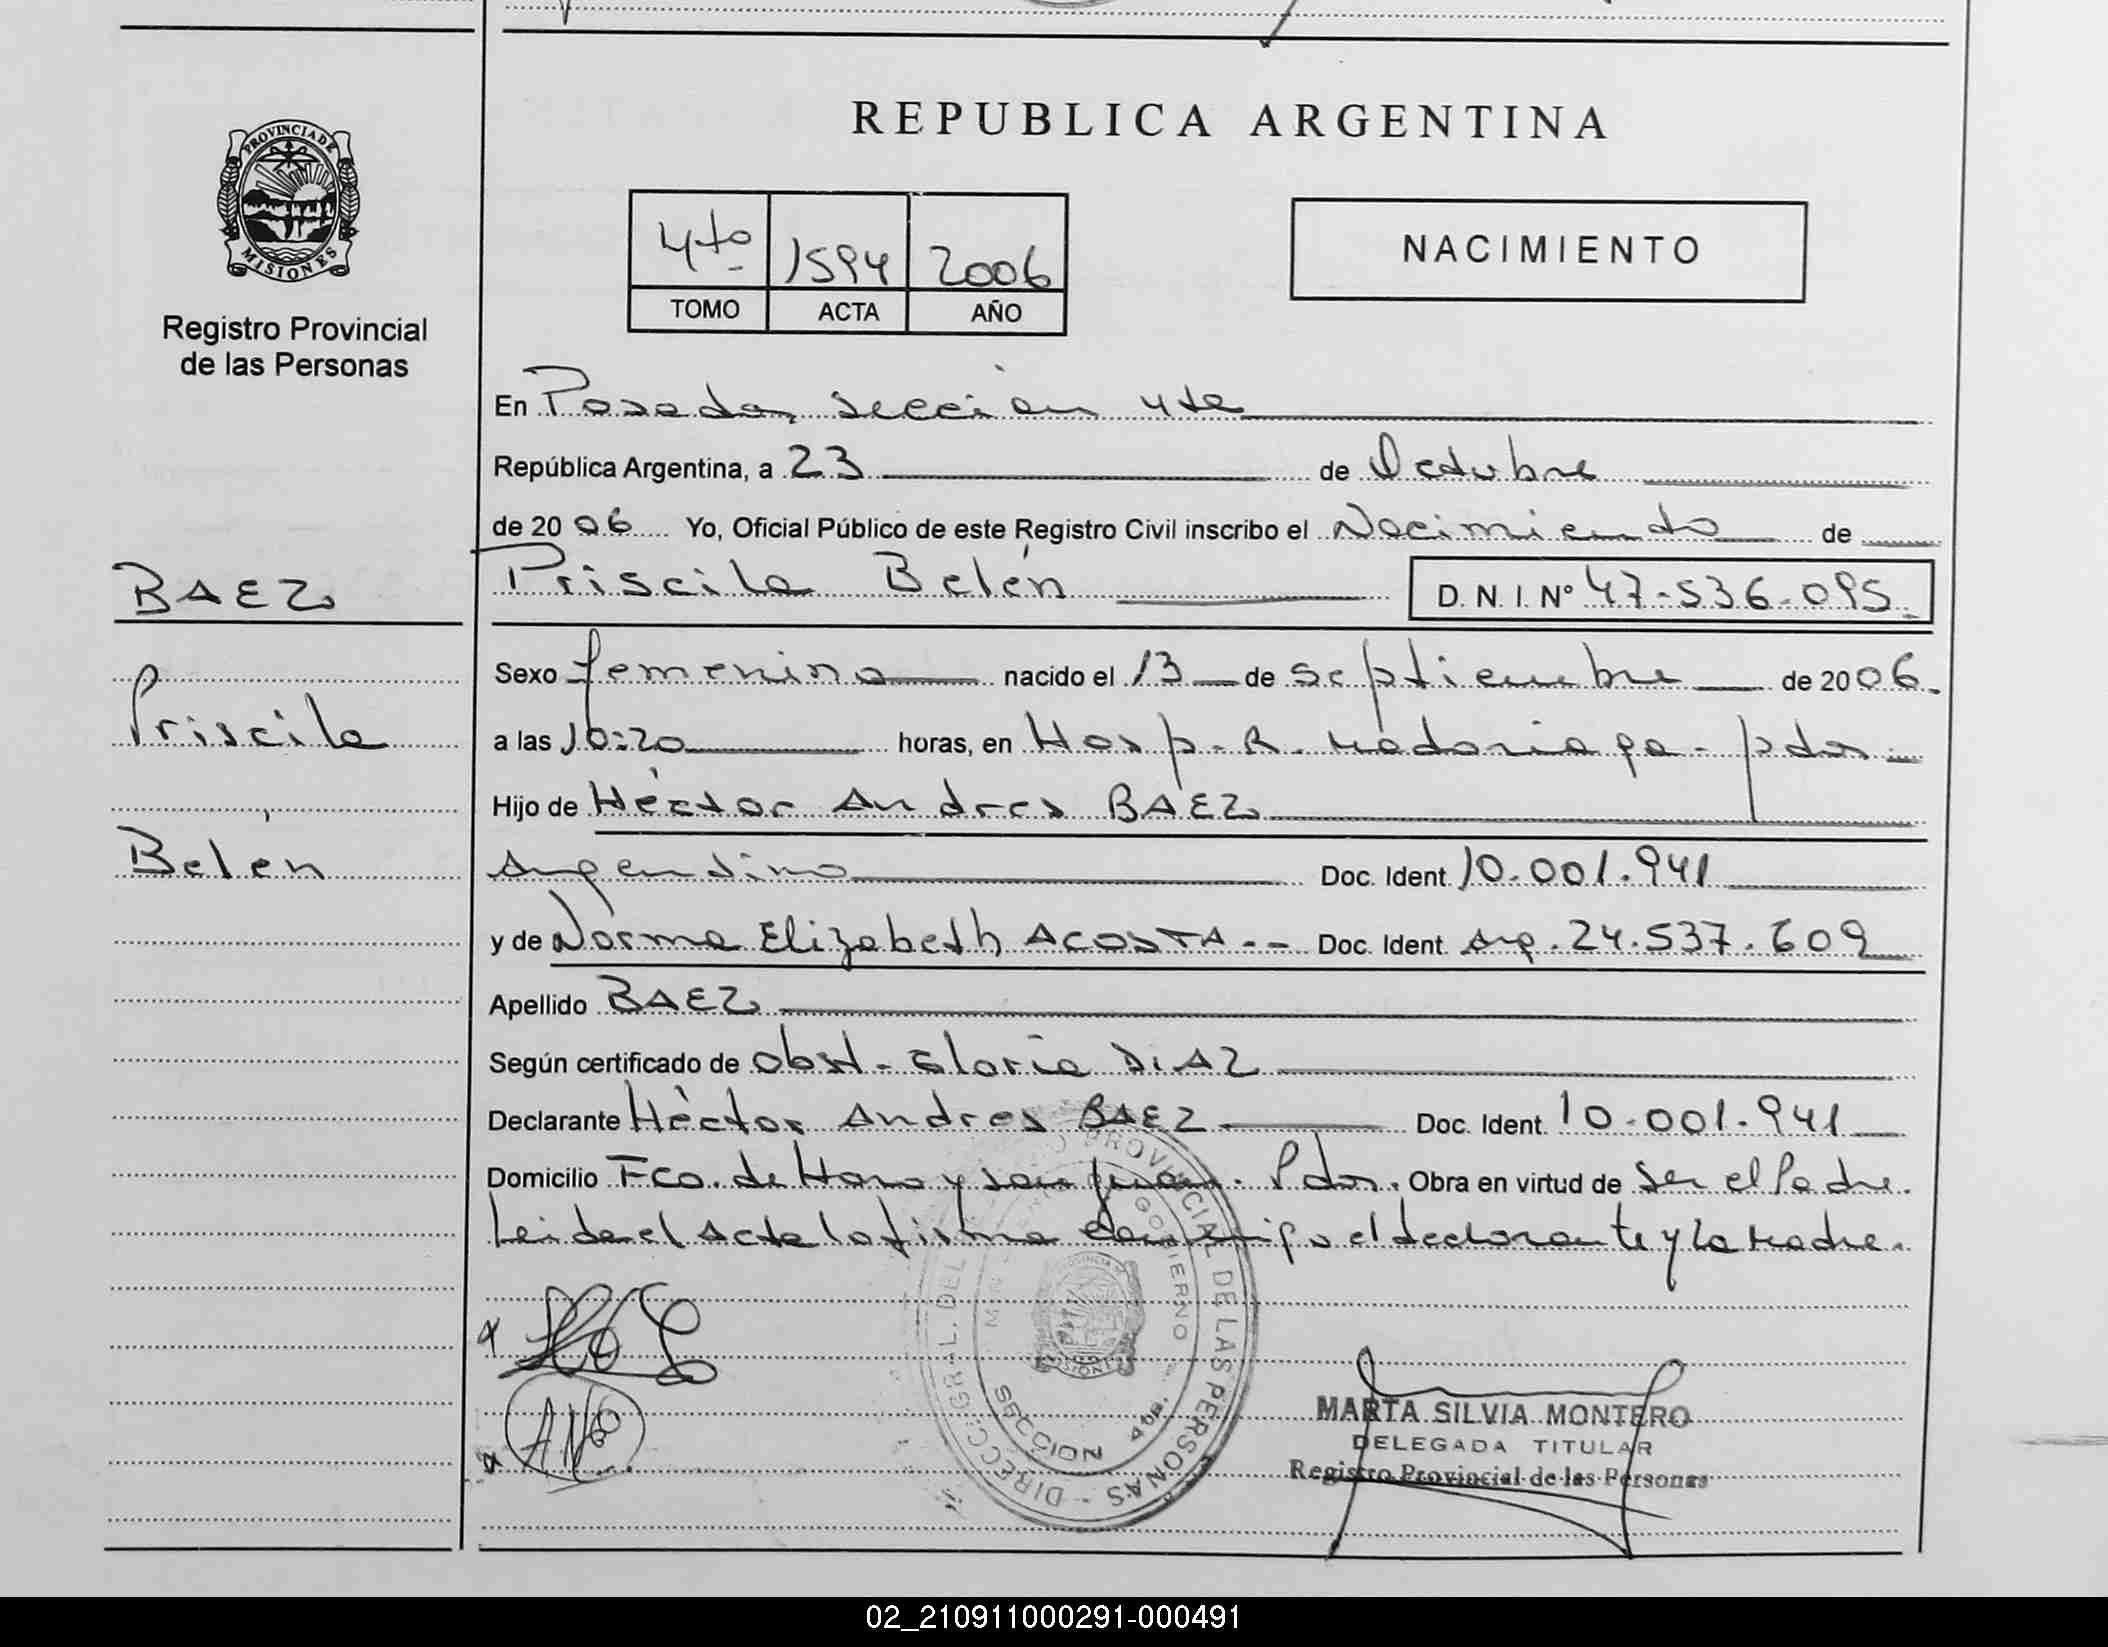 REPUBLICA ARGENTINA
PROVINCIA DE
MISIONES
Registro Provincial
de las Personas
4to 1594 2006
TOMO ACTA AÑO
NACIMIENTO
En Posadas, sección 4ta
República Argentina, a 23 de Octubre
de 2006 Yo, Oficial Público de este Registro Civil inscribo el Nacimiento de
BAEZ
Priscila Belén D. N. I. Nº 47-536-095.
Sexo femenino nacido el 13 de septiembre de 2006.
Priscila
a las 10:20 horas, en Hosp. R. Madariaga - Pdas
Hijo de Héctor Andres BAEZ
Belén
Argentino Doc. Ident. 10.001.941
y de Norma Elizabeth ACOSTA -- Doc. Ident. Arg. 24.537.609
Apellido BAEZ
Según certificado de Obst. Gloria DIAZ
Declarante Héctor Andres BAEZ Doc. Ident. 10.001.941
Domicilio Fco. de Haro y San Juan. Pdas. Obra en virtud de Ser el Padre.
Leida el Acta la firma conmigo el declarante y la Madre.
DIRECC. GRAL. DEL PROVINCIAL DE LAS PERSONAS -
GOBIERNO
SECCION 4ta.
MARTA SILVIA MONTERO
DELEGADA TITULAR
Registro Provincial de las Personas
02_210911000291-000491